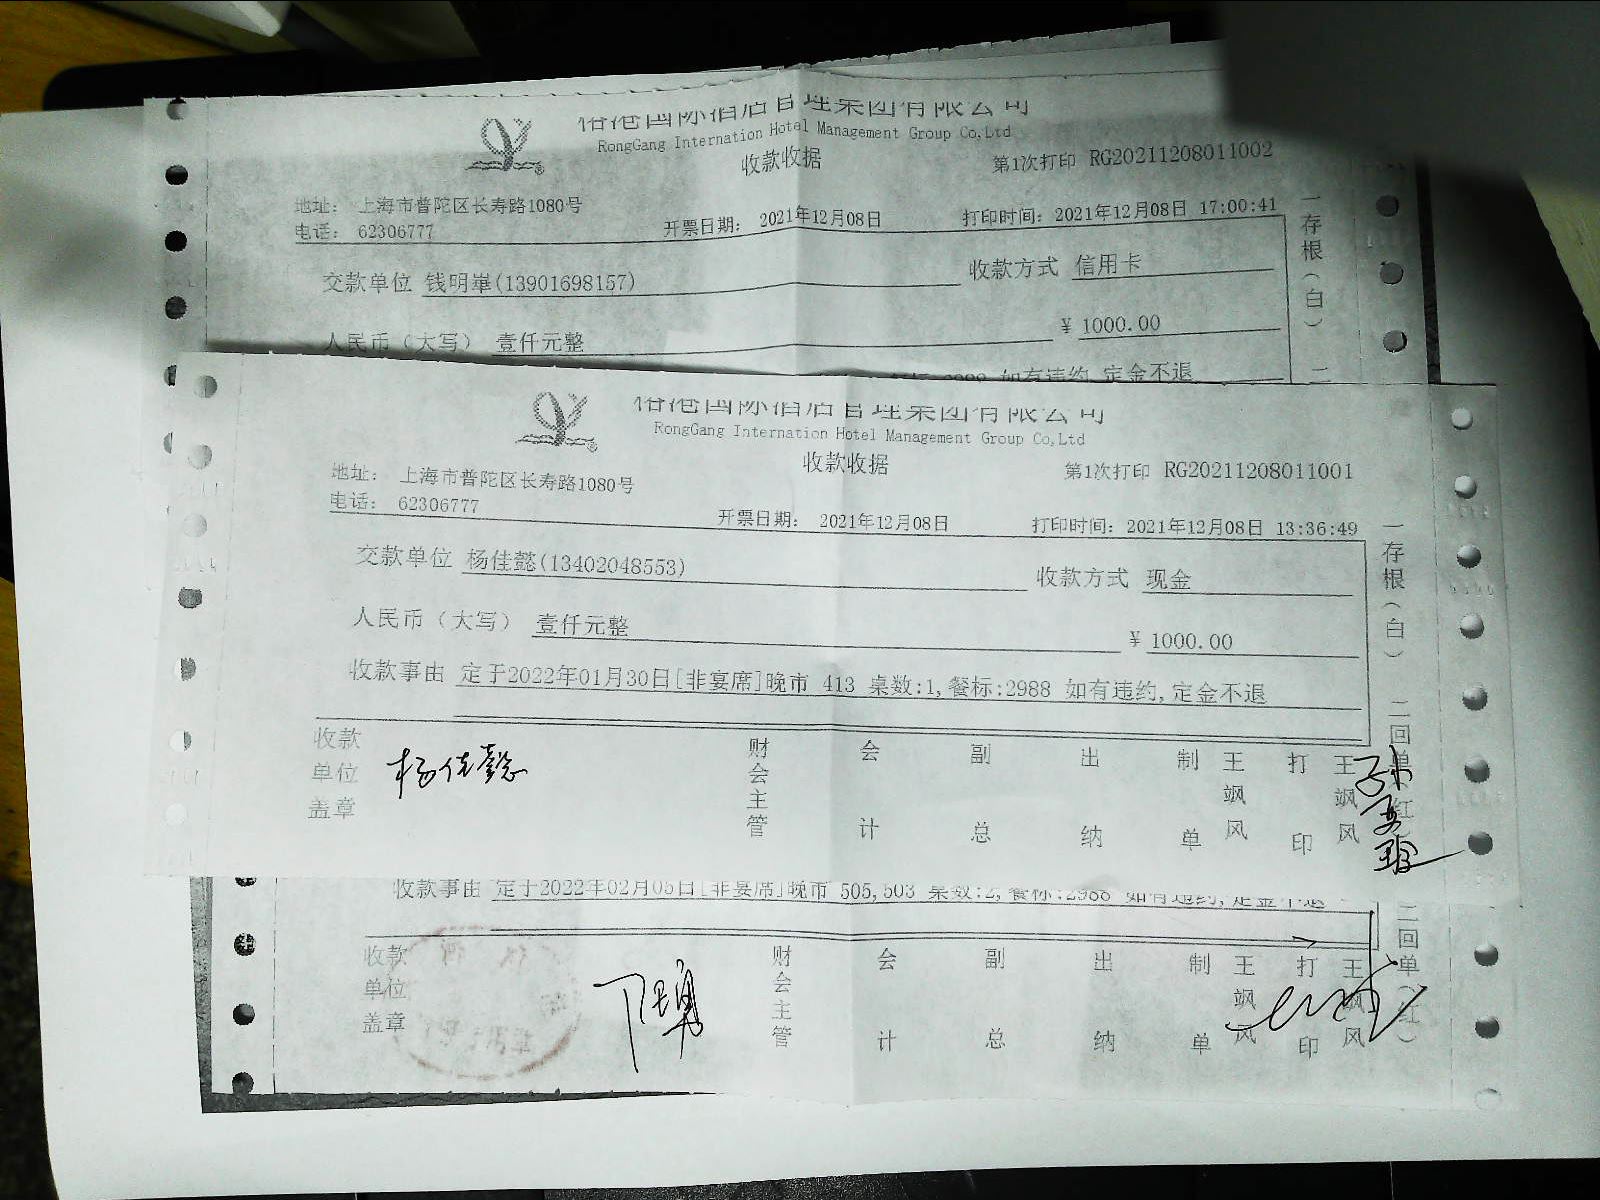 裕港国际酒店管理集团有限公司
RongGang Internation Hotel Management Group Co,Ltd
收款收据
第1次打印 RG20211208011002
地址: 上海市普陀区长寿路1080号
电话: 62306777
开票日期: 2021年12月08日
打印时间: 2021年12月08日 17:00:41
交款单位 钱明崋(13901698157)
收款方式 信用卡
人民币(大写) 壹仟元整
¥ 1000.00
如有违约,定金不退
一存根(白) 二
裕港国际酒店管理集团有限公司
RongGang Internation Hotel Management Group Co,Ltd
收款收据
第1次打印 RG20211208011001
地址: 上海市普陀区长寿路1080号
电话: 62306777
开票日期: 2021年12月08日
打印时间: 2021年12月08日 13:36:49
交款单位 杨佳懿(13402048553)
收款方式 现金
人民币(大写) 壹仟元整
¥ 1000.00
收款事由 定于2022年01月30日[非宴席]晚市 413 桌数:1,餐标:2988 如有违约,定金不退
一存根(白) 二回单(红)
收款单位盖章 杨佳懿 财会主管 会计 副总 出纳 制单 王飒风 打印 王飒风
收款事由 定于2022年02月05日[非宴席]晚市 505,503 桌数:2,餐标:2988 如有违约,定金不退
二回单(红)
收款单位盖章 财会主管 会计 副总 出纳 制单 王飒风 打印 王飒风